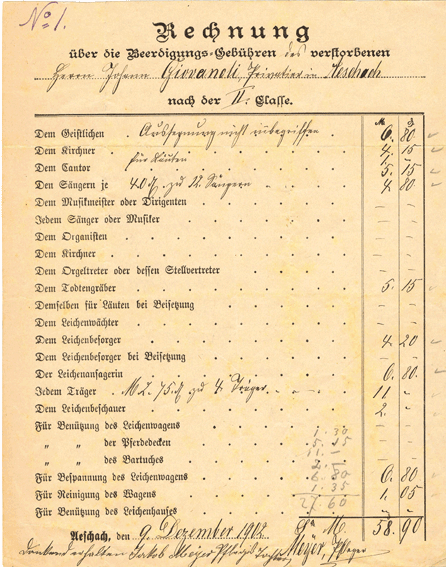 No 1.
Rechnung
über die Beerdigungs-Gebühren des verstorbenen
Herrn Johann Giovanoli, Privatier in Aeschach
nach der II. Classe.
M. ₰
Dem Geistlichen Aussegnung nicht inbegriffen 6. 80
Dem Kirchner 4. 15
Dem Cantor für Läuten 5. 15
Den Sängern je 40 ₰ zu 12 Sängern 4. 80
Dem Musikmeister oder Dirigenten
Jedem Sänger oder Musiker
Dem Organisten
Dem Kirchner
Dem Orgeltreter oder dessen Stellvertreter
Dem Todtengräber 5. 15
Demselben für Läuten bei Beisetzung
Dem Leichenwächter
Dem Leichenbesorger 4. 20
Dem Leichenbesorger bei Beisetzung
Der Leichenansagerin 6. 80
Jedem Träger M 2. 75 ₰ zu 4 Träger 11 –
Dem Leichenbeschauer 2. –
Für Benützung des Leichenwagens
" " der Pferdedecken
" " des Bartuches
Für Bespannung des Leichenwagens 6. 80
Für Reinigung des Wagens 1. 05
Für Benützung des Leichenhauses
27 60
Aeschach, den 9. Dezember 1902 Sa M. 58. 90
Dankend erhalten Jakob Meyer Meyer, Pfleger